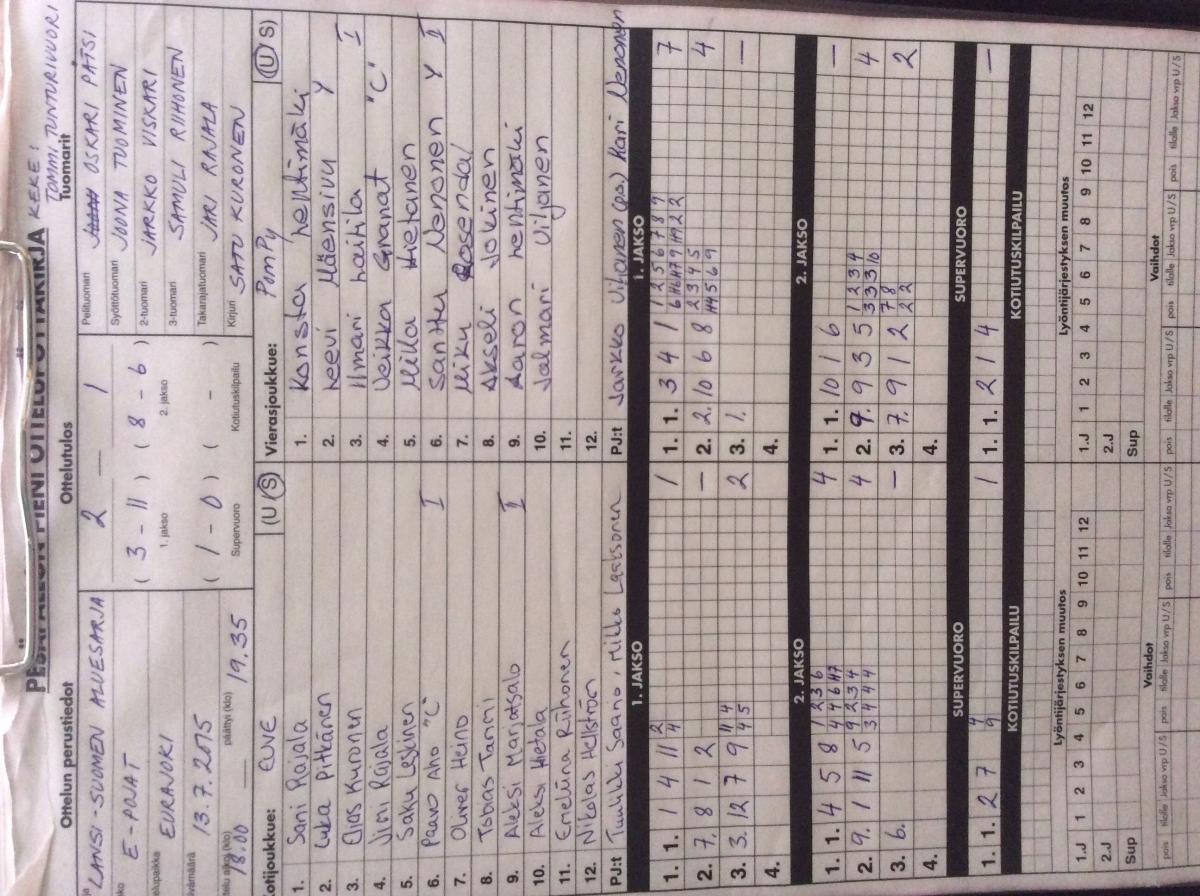 PESÄPALLON PIENI OTTELUPÖYTÄKIRJA KEKE:
TOMMI TUNTURIVUORI
Ottelun perustiedot
LÄNSI-SUOMEN ALUESARJA
E-POJAT
EURAJOKI
13.7.2015
18.00 päättyi (klo) 19.35
Ottelutulos
2 — 1
( 3 - 11 ) ( 8 - 6 )
1. jakso 2. jakso
( 1 - 0 ) ( - )
Supervuoro Kotiutuskilpailu
Tuomarit
Pelituomari OSKARI PÄTSI
Syöttötuomari JOONA TUOMINEN
2-tuomari JARKKO VISKARI
3-tuomari SAMULI RIIHONEN
Takarajatuomari JARI RAJALA
Kirjuri SATU KURONEN
Kotijoukkue: EUVE (U S)
1. Sani Rajala
2. Luka Pitkänen
3. Elias Kuronen
4. Jimi Rajala
5. Saku Leskinen
6. Paavo Aho "C" I
7. Oliver Heino
8. Tobias Tammi
9. Aleksi Marjatsalo I
10. Aleksi Hietala
11. Emeliina Riihonen
12. Nikolas Hellström
PJ:t Tuulikki Saario, Mikko Laaksonen
Vierasjoukkue: PomPy (U S)
1. Konsta Lehtimäki
2. Leevi Mäensivu Y
3. Ilmari Laitila I
4. Veikka Granat "C"
5. Miika Hietanen
6. Santtu Nenonen Y I
7. Miku Rosendal
8. Akseli Jokinen
9. Aaron Lehtimäki
10. Jalmari Viljanen
11.
12.
PJ:t Jarkko Viljanen (pa) Kari Nenonen
1. JAKSO
1. 1. 1 4 11 2 4 1
2. 7. 8 1 2 –
3. 3. 12 7 9 11 4 4 5 2
4.
2. JAKSO
1. 1. 4 5 8 1 2 3 6 4
2. 9. 1 11 5 9 2 3 4 3 4 4 4 4
3. 6. –
4.
SUPERVUORO
1. 1. 2 7 4 9 1
KOTIUTUSKILPAILU
1. JAKSO
1. 1. 3 4 1 1 2 5 6 7 8 9 7
2. 2. 10 6 8 2 3 4 5 4
3. 1. –
4.
2. JAKSO
1. 1. 10 1 6 –
2. 9. 9 3 5 1 2 3 4 3 3 3 10 4
3. 7. 9 1 2 7 8 2 2 2
4.
SUPERVUORO
1. 1. 2 1 4 –
KOTIUTUSKILPAILU
Lyöntijärjestyksen muutos
1.J 1 2 3 4 5 6 7 8 9 10 11 12
2.J
Sup
Vaihdot
pois tilalle Jakso vrp U/S pois tilalle Jakso vrp U/S pois tilalle Jakso vrp U/S
Lyöntijärjestyksen muutos
1.J 1 2 3 4 5 6 7 8 9 10 11 12
2.J
Sup
Vaihdot
pois tilalle Jakso vrp U/S pois tilalle Jakso vrp U/S pois tilalle Jakso vrp U/S